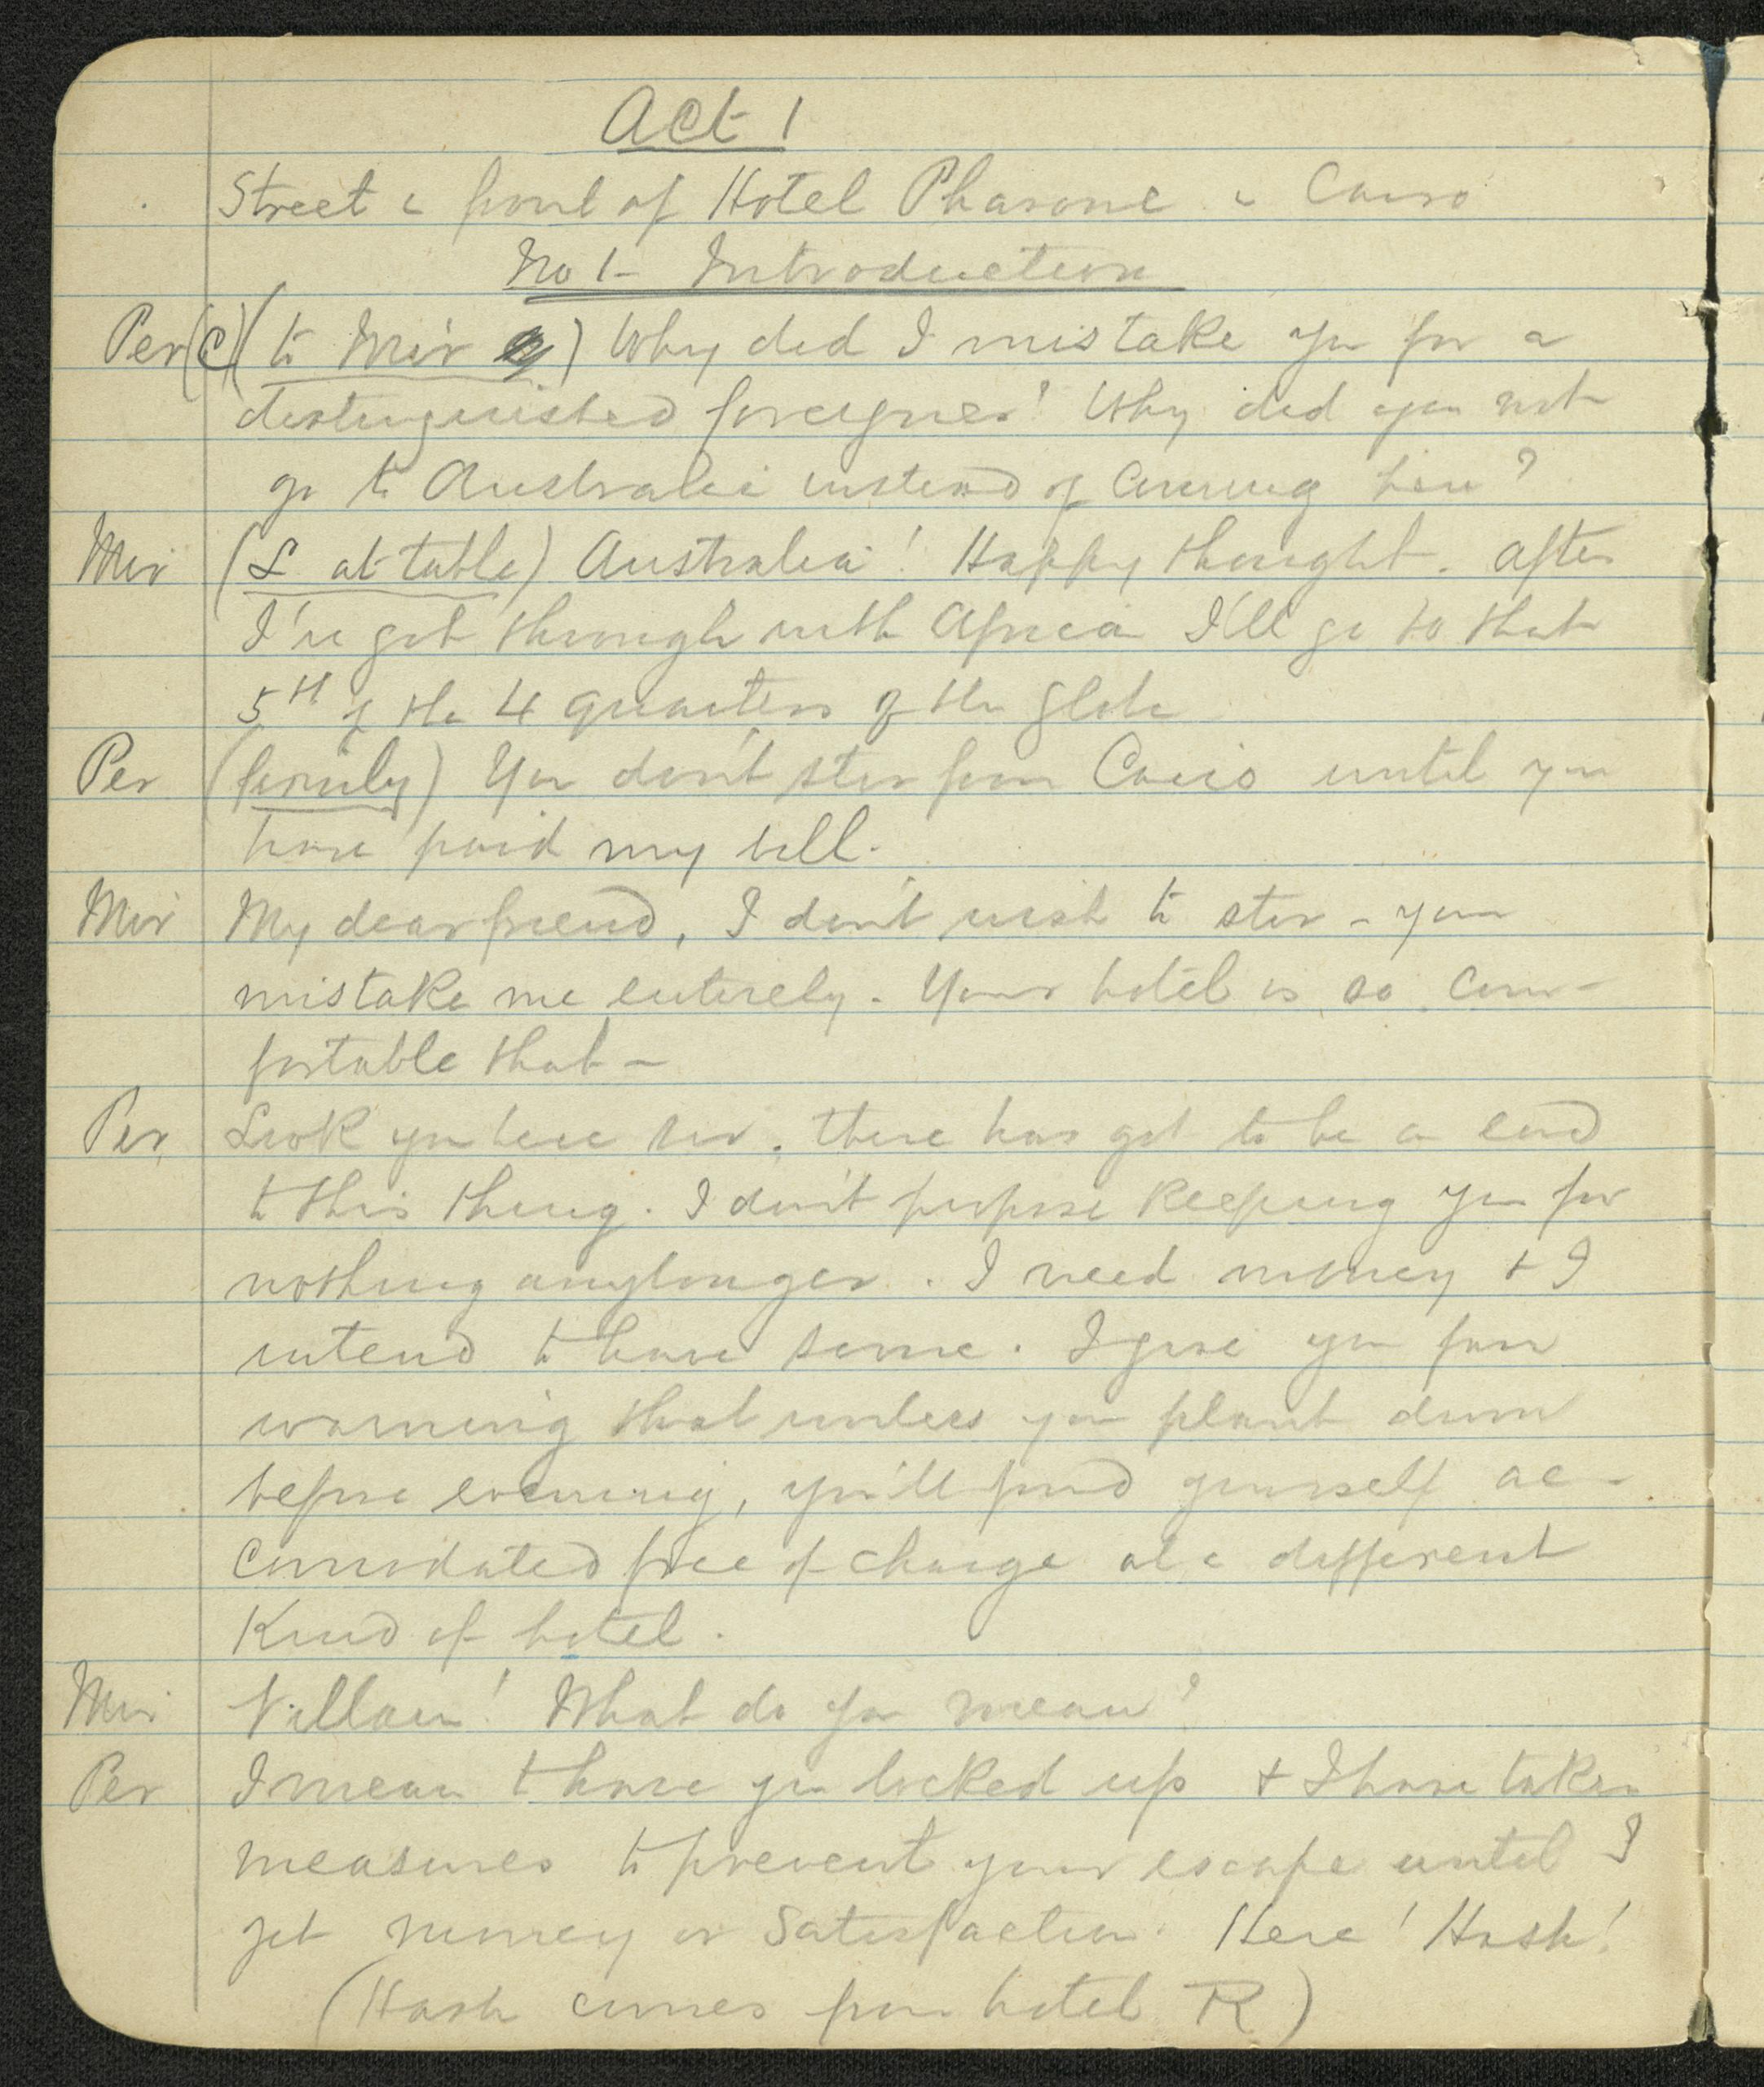 Act 1
Street i front of Hotel Pharaone i Cairo
No 1 - Introduction
Per (C) (to Mir) Why did I mistake you for a
distinguished foreigner? Why did you not
go to Australia instead of coming here?
Mir (L at table) Australia! Happy thought. After
I've got through with Africa I'll go to that
5th of the 4 quarters of the globe
Per (firmly) You don't stir from Cairo until you
have paid my bill.
Mir My dear friend, I don't wish to stir - you
mistake me entirely. Your hotel is so com-
fortable that -
Per Look you here sir, there has got to be a end
to this thing. I don't propose keeping you for
nothing any longer. I need money + I
intend to have some. I give you fair
warning that unless you plank down
before evening, you'll find yourself ac-
comodated free of charge at a different
Kind of hotel.
Mir Villain! What do you mean?
Per I mean to have you locked up + I have taken
measures to prevent your escape until I
get money or satisfaction. Here! Hash!
(Hash comes from hotel R)